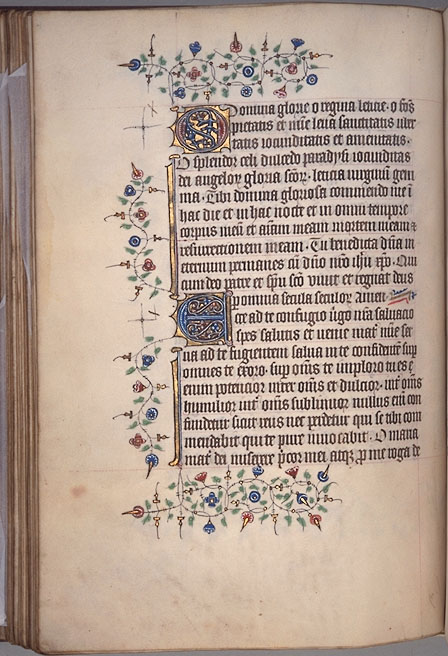 O domina glorie o regina leticie · o fons
pietatis et
tatis iocunditatis et amenitatis ·
O splendor celi dulcedo paradysi iocunditas
dei angeloꝝ gloria scōꝝ · leticia virginū gem
ma · Tibi domina gloriosa commendo me ī
hac die et in hac nocte et in omni tempore
corpus meū et aīam meam mortem meam et
resurrectionem meam · Tu benedicta dn̄a in
eternum permanes cū dn̄o nr̄o ihū xp̄o · Qui
cum deo patre et sp̄u scō viuit et regnat deus
per omnia secula seculoꝝ Amen ·
Ad te confugio v̄go nr̄a saluacio
spes salutis et uenie mat̄
na ad te fugientem salua in te confidentē sup
omnes te exoro · sup om̄s te imploro tu es
enim potencior inter om̄s et dulcior · int̄ om̄s
humilior int̄ om̄s sublimior nullus enī con
funditur sicut reus nec perditur qui se tibi com
mendabit qui te pure inuocabit · O maria
mat̄ dei miserere p̄cor mei atqꝫ ꝓ me roga de